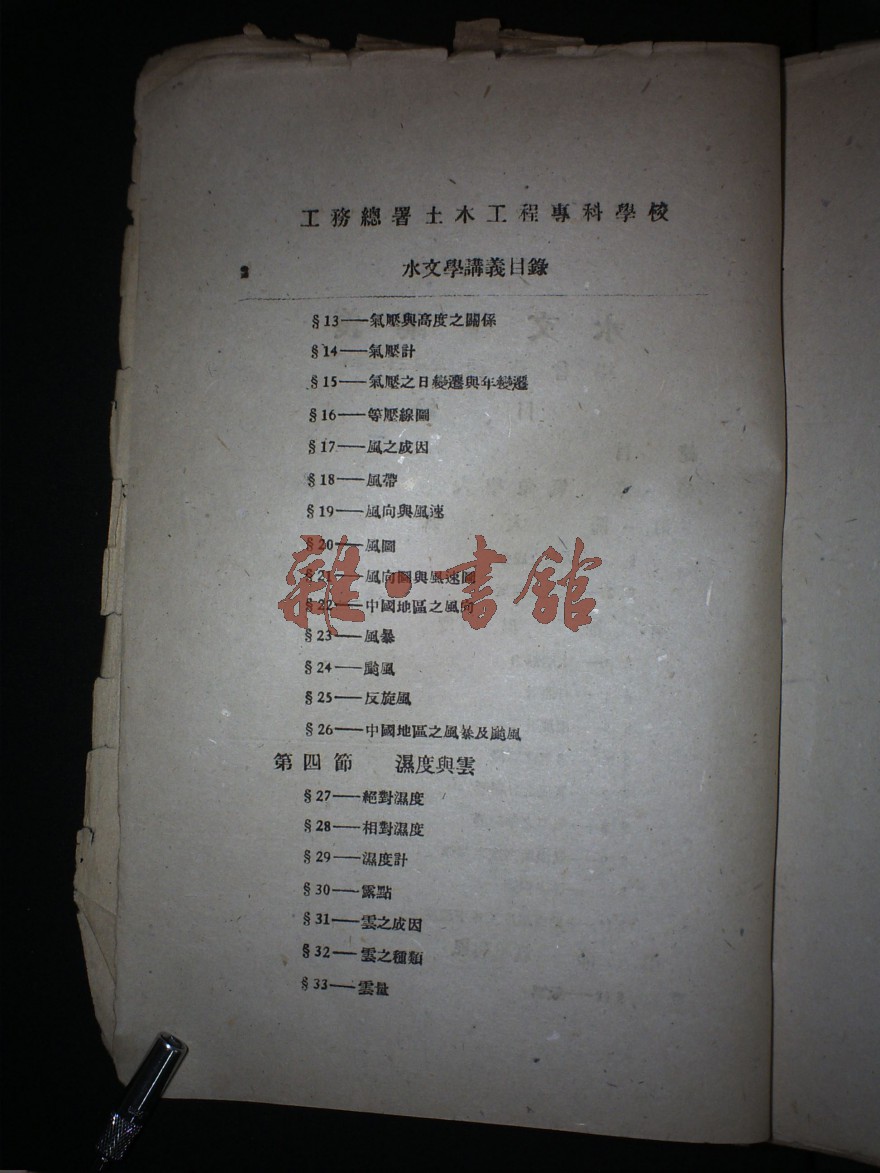 工務總署土木工程專科學校
2
水文學講義目錄
§13——氣壓與高度之關係
§14——氣壓計
§15——氣壓之日變遷與年變遷
§16——等壓線圖
§17——風之成因
§18——風帶
§19——風向與風速
§20——風圖
§21——風向圖與風速圖
§22——中國地區之風向
§23——風暴
§24——颱風
§25——反旋風
§26——中國地區之風暴及颱風
第四節 濕度與雲
§27——絕對濕度
§28——相對濕度
§29——濕度計
§30——露點
§31——雲之成因
§32——雲之種類
§33——雲量
雜·書館